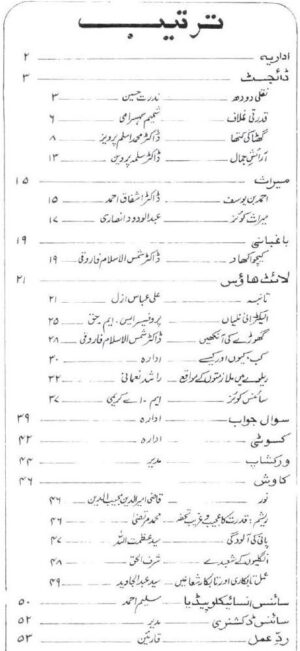 ترتیب
اداریہ ۲
ڈائجسٹ ۳
نقلی دودھ ندرت حسین ۳
قدرتی غلاف شمیم سہسرامی ۶
گھٹا کی کتھا ڈاکٹر محمد اسلم پرویز ۸
آرائشِ جمال ڈاکٹر سلمہ پروین ۱۳
میراث ۱۵
احمد بن یوسف ڈاکٹر اشفاق احمد ۱۵
میراث کوئز عبدالودود انصاری ۱۷
باغبانی ۱۹
کیچوا کھاد ڈاکٹر شمس الاسلام فاروقی ۱۹
لائٹ ھاؤس ۲۱
تانبہ علی عباس ازل ۲۱
الیکٹرانی نلیاں پروفیسر ایس۔ ایم۔ حق ۲۵
گھوڑے کی آنکھیں ڈاکٹر شمس الاسلام فاروقی ۲۸
کب کیوں اور کیسے ادارہ ۳۰
ریلوے میں ملازمتوں کے مواقع راشد نعمانی ۳۲
سائنس کوئز ایم۔ اے کریمی ۳۷
سوال جواب ادارہ ۳۹
کسوٹی ادارہ ۴۲
ورکشاپ مدیر ۴۴
کاوش ۴۶
نور قاضی امیرالدین مجیب الدین ۴۶
ریشم: قدرت کا عجیب و غریب تحفہ محمد مرتضی ۴۶
پانی کی آلودگی سید عظمت اللہ ۴۷
انگلیوں کے شعبدے شرف الحق ۴۸
عمل تابکاری اور تابکار شعاعیں سید عبدالجاوید ۴۹
سائنس انسائیکلوپیڈیا سلیم احمد ۵۰
سائنس ڈکشنری مدیر ۵۲
ردِّ عمل قارئین ۵۳